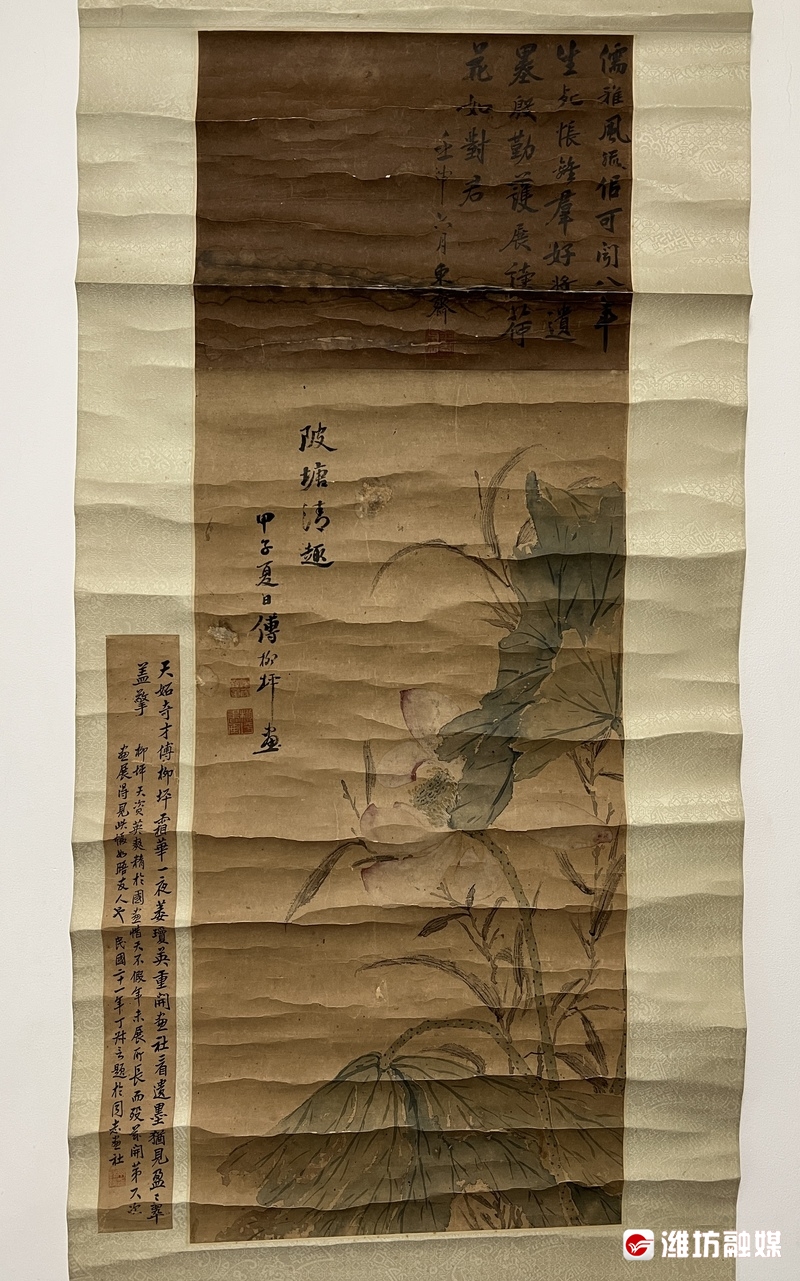 儒雅風流可聞八年
生死悵離羣好將遺
墨殷勤護展讀荷
花如對君
壬申六月東齋
陂塘清趣
甲子夏日傅柳坪畫
天妬奇才傅柳坪霜華一夜萎瓊英重開画社看遺墨猶見盈々翠
蓋擎
柳坪天資英爽精於國画惜天不假年未展所長而歿茲開第六次
画展得見此幅如晤友人也 民國二十一年丁叔言題於同志画社
潍坊融媒